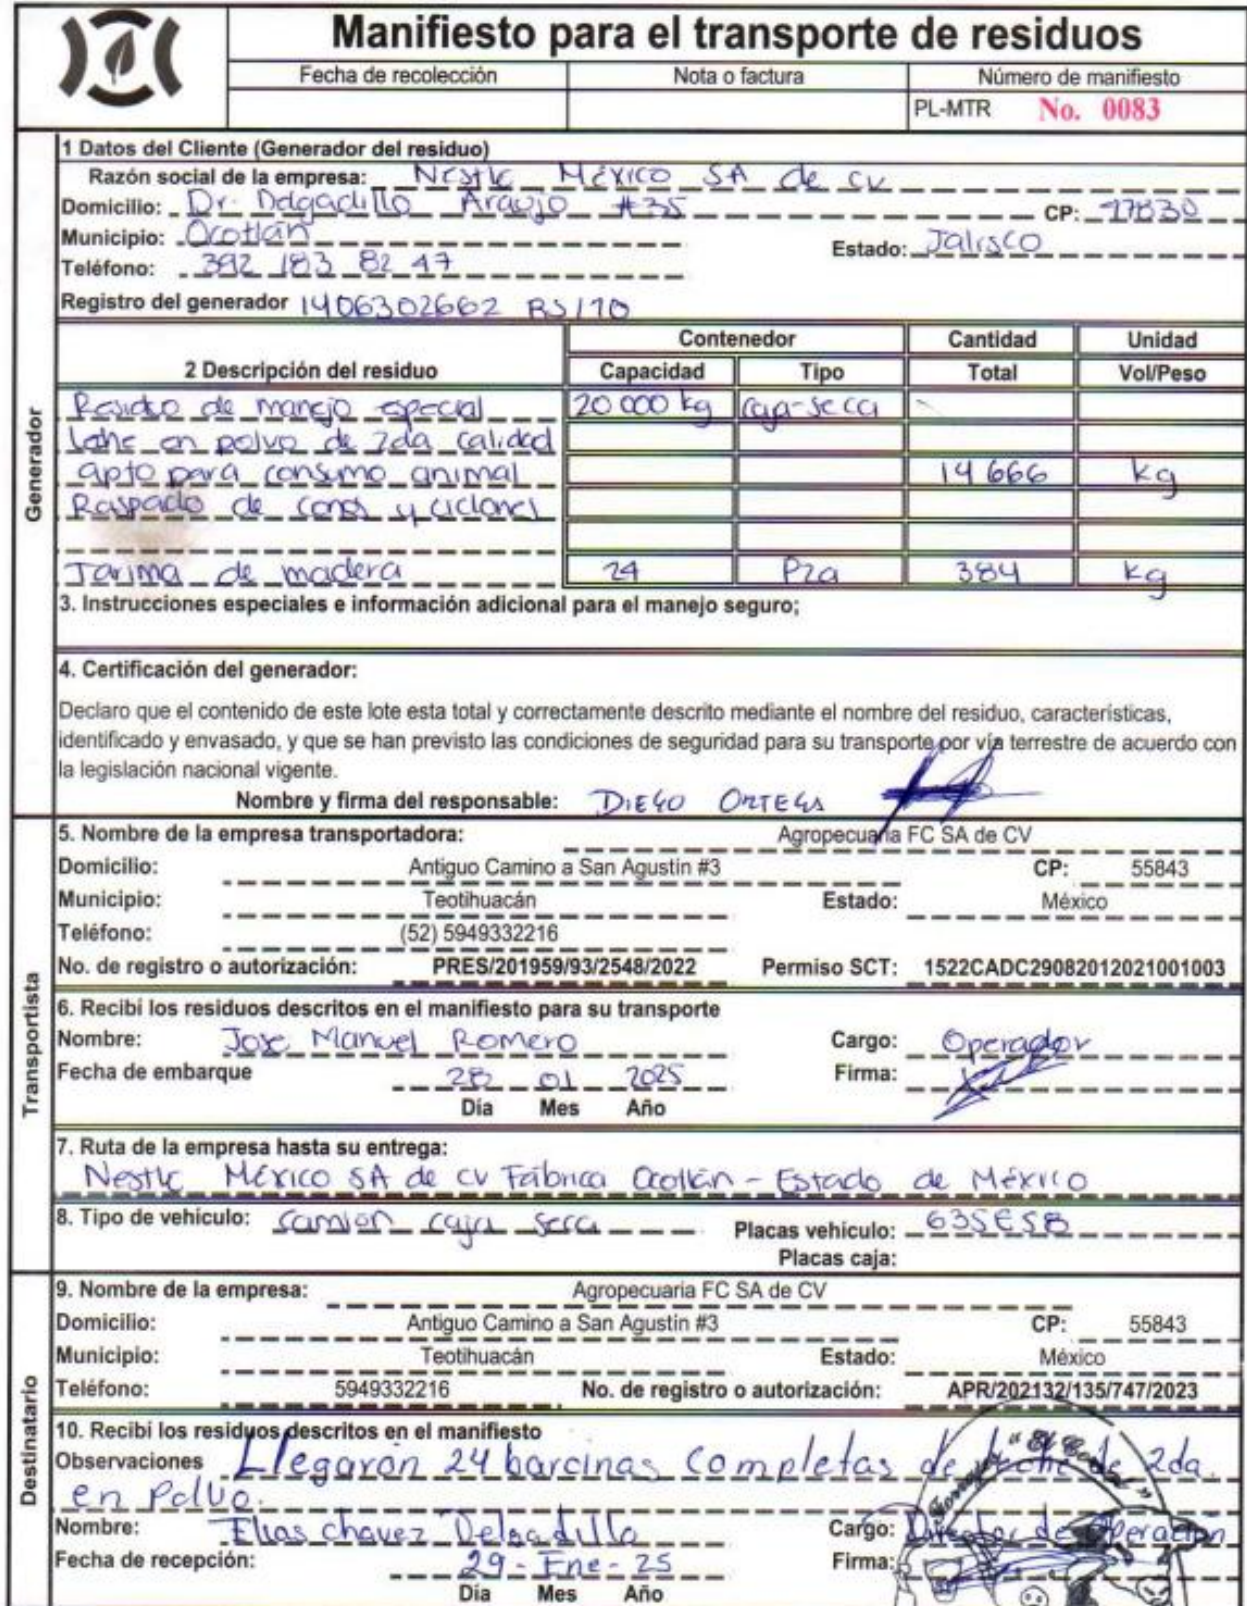 Manifiesto para el transporte de residuos
Fecha de recolección Nota o factura Número de manifiesto
PL-MTR No. 0083
Generador
1 Datos del Cliente (Generador del residuo)
Razón social de la empresa: Nestlé México SA de CV
Domicilio: Dr. Delgadillo Araujo #35 CP: 47830
Municipio: Ocotlán Estado: Jalisco
Teléfono: 392 183 82 47
Registro del generador 1406302662 RS/10
Contenedor Cantidad Unidad
2 Descripción del residuo Capacidad Tipo Total Vol/Peso
Residuo de manejo especial 20 000 kg caja-seca
Leche en polvo de 2da calidad
apto para consumo animal 14 666 kg
Raspado de conos y ciclones
Tarima de madera 24 Pza 384 kg
3. Instrucciones especiales e información adicional para el manejo seguro;
4. Certificación del generador:
Declaro que el contenido de este lote esta total y correctamente descrito mediante el nombre del residuo, características,
identificado y envasado, y que se han previsto las condiciones de seguridad para su transporte por vía terrestre de acuerdo con
la legislación nacional vigente.
Nombre y firma del responsable: DIEGO ORTEGA
Transportista
5. Nombre de la empresa transportadora: Agropecuaria FC SA de CV
Domicilio: Antiguo Camino a San Agustin #3 CP: 55843
Municipio: Teotihuacán Estado: México
Teléfono: (52) 5949332216
No. de registro o autorización: PRES/201959/93/2548/2022 Permiso SCT: 1522CADC29082012021001003
6. Recibí los residuos descritos en el manifiesto para su transporte
Nombre: Jose Manuel Romero Cargo: Operador
Fecha de embarque 28 01 2025 Firma:
Día Mes Año
7. Ruta de la empresa hasta su entrega:
Nestlé México SA de CV Fábrica Ocotlán - Estado de México
8. Tipo de vehículo: camión caja seca Placas vehículo: 635ESB
Placas caja:
Destinatario
9. Nombre de la empresa: Agropecuaria FC SA de CV
Domicilio: Antiguo Camino a San Agustin #3 CP: 55843
Municipio: Teotihuacán Estado: México
Teléfono: 5949332216 No. de registro o autorización: APR/202132/135/747/2023
10. Recibí los residuos descritos en el manifiesto
Observaciones Llegaron 24 barcinas Completas de leche de 2da.
en Polvo.
Nombre: Elias chavez Delgadillo Cargo: Director de Operación
Fecha de recepción: 29 - Ene - 25 Firma:
Día Mes Año